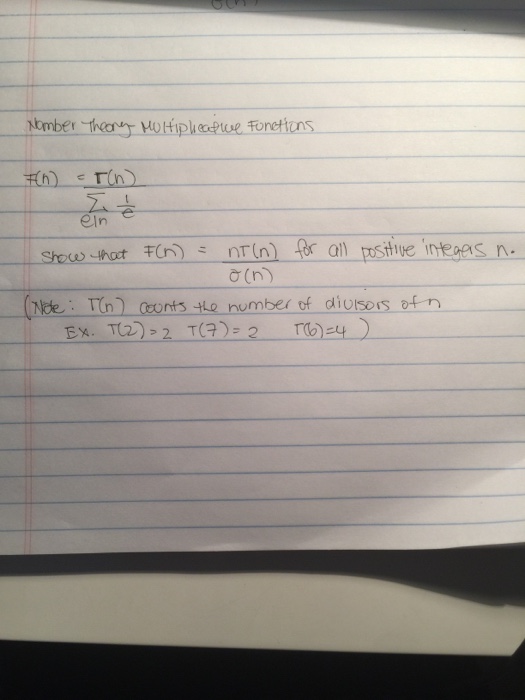 Number Theory Multiplicative Functions
F(n) = T(n)
∑ 1/e
e|n
Show that F(n) = nT(n) for all positive integers n.
σ(n)
(Note: T(n) counts the number of divisors of n
Ex. T(2)=2 T(7)=2 T(6)=4 )